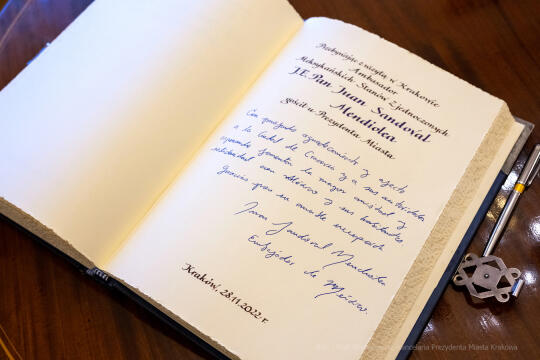 Przebywając z wizytą w Krakowie
Ambasador
Meksykańskich Stanów Zjednoczonych
J.E. Pan Juan Sandoval
Mendiolea
gościł u Prezydenta Miasta
Con profundo agradecimiento y afecto
a la Ciudad de Cracovia y a sus autoridades
esperando fomentar la mayor amistad y
solidaridad con México y sus habitantes.
Gracias por su amable recepción
Juan Sandoval Mendiolea
Embajador de México.
Kraków, 28.11.2022 r.
Kancelaria Prezydenta Miasta Krakowa